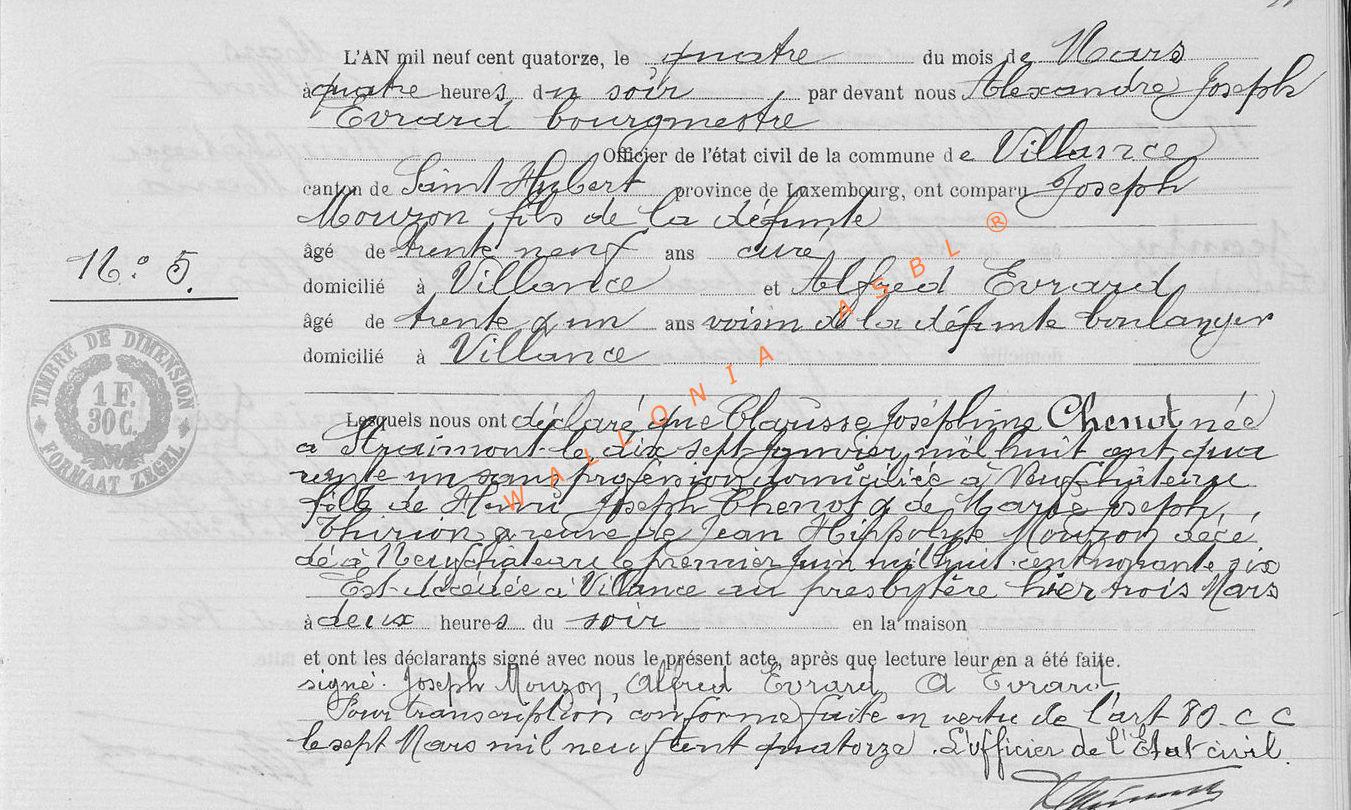 L'AN mil neuf cent quatorze, le quatre du mois de Mars
à quatre heures du soir par devant nous Alexandre Joseph
Evrard bourgmestre
Officier de l'état civil de la commune de Villance
canton de Saint Hubert province de Luxembourg, ont comparu Joseph
Mouzon fils de la défunte
âgé de trente neuf ans curé
N.° 5.
domicilié à Villance et Alfred Evrard
âgé de trente d un ans voisin de la défunte boulanger
domicilié à Villance
TIMBRE DE DIMENSION
1 F.
30 C.
FORMAAT ZEGEL
WALLONIA ASBL ®
Lesquels nous ont déclaré que Clarisse Joséphine Chenot née
a Straimont le dix sept Janvier mil huit cent qua
rente un sans profession domiciliée à Neufchâteau
fille de Henri Joseph Chenot & de Marie Joseph
Thirion & veuve de Jean Hippolyte Mouzon décé
dé à Neufchâteau le premier Juin mil huit cent nonante six
Est décédée à Villance au presbytère hier trois Mars
à deux heures du soir en la maison
et ont les déclarants signé avec nous le présent acte, après que lecture leur en a été faite.
signé. Joseph Mouzon, Alfred Evrard, A Evrard
Pour transcription conforme faite en vertu de l'art 80 C C
le sept Mars mil neuf cent quatorze. L'officier de l'Etat civil.